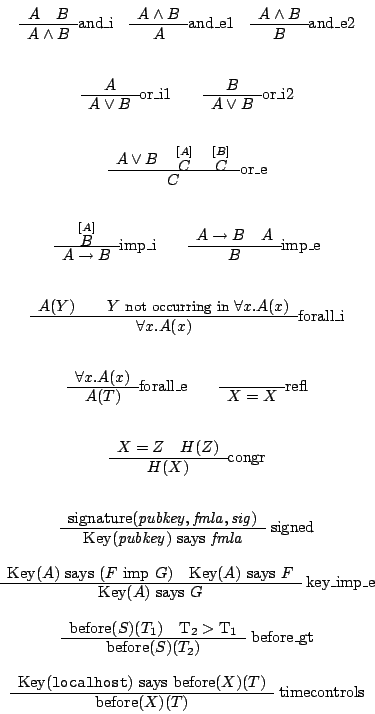 A B
A ∧ B and_i
A ∧ B
A and_e1
A ∧ B
B and_e2
A
A ∨ B or_i1
B
A ∨ B or_i2
[A] [B]
A ∨ B C C
C or_e
[A]
B
A → B imp_i
A → B A
B imp_e
A(Y) Y not occurring in ∀x.A(x)
∀x.A(x) forall_i
∀x.A(x)
A(T) forall_e
X = X refl
X = Z H(Z)
H(X) congr
signature(pubkey, fmla, sig)
Key(pubkey) says fmla signed
Key(A) says (F imp G) Key(A) says F
Key(A) says G key_imp_e
before(S)(T₁) T₂ > T₁
before(S)(T₂) before_gt
Key(localhost) says before(X)(T)
before(X)(T) timecontrols